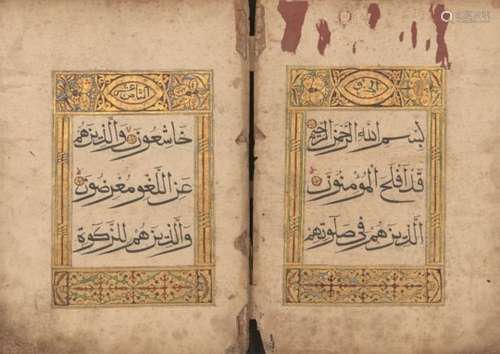 بسم الله الرحمن الرحيم
قد افلح المومنون
الذين هم في صلوتهم
الثامن عشر
خاشعون والذين هم
عن اللغو معرضون
والذين هم للزكوة